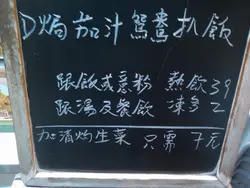 D焗茄汁鴛鴦扒飯
跟飯或意粉 熱飲39
跟湯及餐飲 凍多2
加酒灼生菜 只需7元